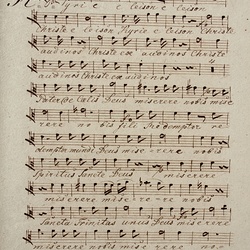 Kyrie e leison e leison
Christe e leison Kyrie e leison Christe
audi nos Christe ex audi nos Christe
audi nos Christe ex audi nos
Pater de Caelis Deus miserere nobis mise
rere no bis fili Redemptor re
demptor mundi Deus mise rere nobis
Spiritus Sancte Deus miserere
miserere mise re re nobis
Sancta Trinitas unus Deus miserere
miserere nobis mise rere nos